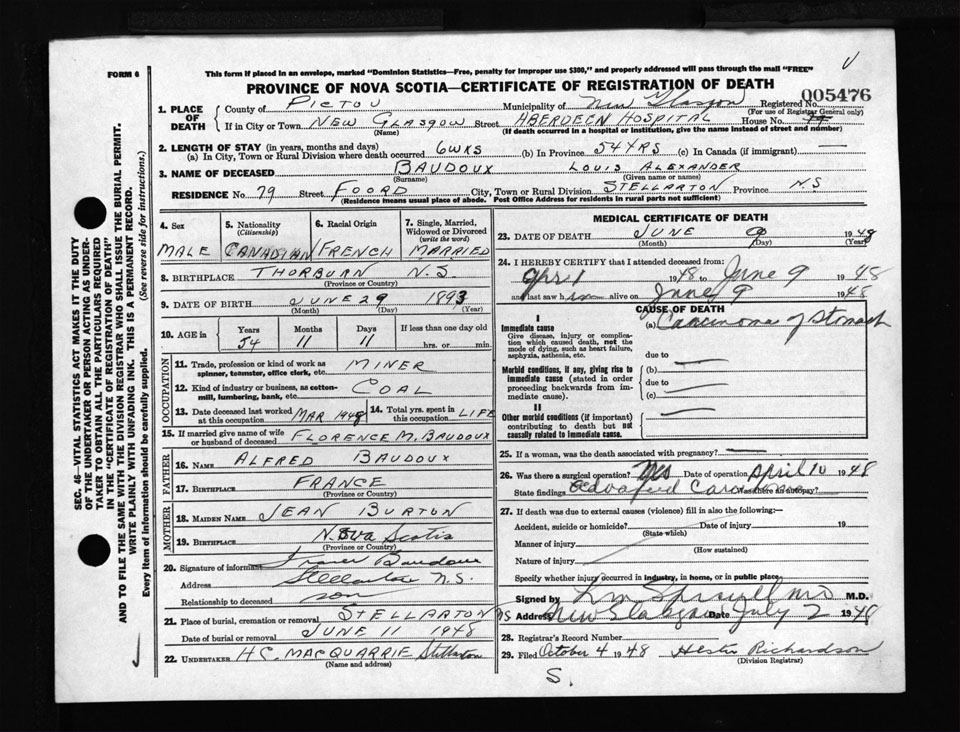 FORM 6
This form if placed in an envelope, marked "Dominion Statistics—Free, penalty for improper use $300," and properly addressed will pass through the mail "FREE"
PROVINCE OF NOVA SCOTIA—CERTIFICATE OF REGISTRATION OF DEATH
005476
1. PLACE OF DEATH County of PICTOU Municipality of New Glasgow Registered No.
(For use of Registrar General only)
If in City or Town NEW GLASGOW Street ABERDEEN HOSPITAL House No.
(Name) (If death occurred in a hospital or institution, give the name instead of street and number)
2. LENGTH OF STAY (in years, months and days)
(a) In City, Town or Rural Division where death occurred 6 WKS (b) In Province 54 YRS (c) In Canada (if immigrant) —
3. NAME OF DECEASED BAUDOUX LOUIS ALEXANDER
(Surname) (Given name or names)
RESIDENCE No. 79 Street FOORD City, Town or Rural Division STELLARTON Province N.S.
(Residence means usual place of abode. Post Office Address for residents in rural parts not sufficient)
SEC. 46—VITAL STATISTICS ACT MAKES IT THE DUTY
OF THE UNDERTAKER OR PERSON ACTING AS UNDER-
TAKER TO OBTAIN ALL THE PARTICULARS REQUIRED
IN THE "CERTIFICATE OF REGISTRATION OF DEATH"
AND TO FILE THE SAME WITH THE DIVISION REGISTRAR WHO SHALL ISSUE THE BURIAL PERMIT.
WRITE PLAINLY WITH UNFADING INK. THIS IS A PERMANENT RECORD.
Every item of information should be carefully supplied. (See reverse side for instructions.)
4. Sex 5. Nationality (Citizenship) 6. Racial Origin 7. Single, Married, Widowed or Divorced (write the word)
MALE CANADIAN FRENCH MARRIED
8. BIRTHPLACE THORBURN N.S.
(Province or Country)
9. DATE OF BIRTH JUNE 29 1893
(Month) (Day) (Year)
10. AGE in Years Months Days If less than one day old
54 11 11 hrs. or min.
OCCUPATION
11. Trade, profession or kind of work as spinner, teamster, office clerk, etc. MINER
12. Kind of industry or business, as cotton-mill, lumbering, bank, etc. COAL
13. Date deceased last worked at this occupation MAR 1948 14. Total yrs. spent in this occupation LIFE
15. If married give name of wife or husband of deceased FLORENCE M. BAUDOUX
FATHER
16. NAME ALFRED BAUDOUX
17. BIRTHPLACE FRANCE
MOTHER
18. MAIDEN NAME JEAN BURTON
19. BIRTHPLACE Nova Scotia
(Province or Country)
20. Signature of informant Baudoux
Address Stellarton N.S.
Relationship to deceased son
21. Place of burial, cremation or removal STELLARTON
Date of burial or removal JUNE 11 1948
22. UNDERTAKER H.C. MACQUARRIE Stellarton
(Name and address)
MEDICAL CERTIFICATE OF DEATH
23. DATE OF DEATH JUNE 9 1948
(Month) (Day) (Year)
24. I HEREBY CERTIFY that I attended deceased from:
Apr 1 1948 to June 9 1948
and last saw him alive on June 9 1948
CAUSE OF DEATH
I
Immediate cause (a) Carcinoma of Stomach
Give disease, injury or complication which caused death, not the mode of dying, such as heart failure, asphyxia, asthenia, etc.
due to —
Morbid conditions, if any, giving rise to immediate cause (stated in order proceeding backwards from immediate cause).
(b) —
due to —
(c) —
II
Other morbid conditions (if important) contributing to death but not causally related to immediate cause. —
25. If a woman, was the death associated with pregnancy? —
26. Was there a surgical operation? Yes Date of operation April 10 1948
State findings Advanced Carcinoma Was there an autopsy?
27. If death was due to external causes (violence) fill in also the following:—
Accident, suicide or homicide? Date of injury 19
(State which)
Manner of injury
(How sustained)
Nature of injury
Specify whether injury occurred in industry, in home, or in public place
Signed by M.D.
Address New Glasgow NS Date July 2 1948
28. Registrar's Record Number
29. Filed October 4 1948 Hester Richardson
(Division Registrar)
S.